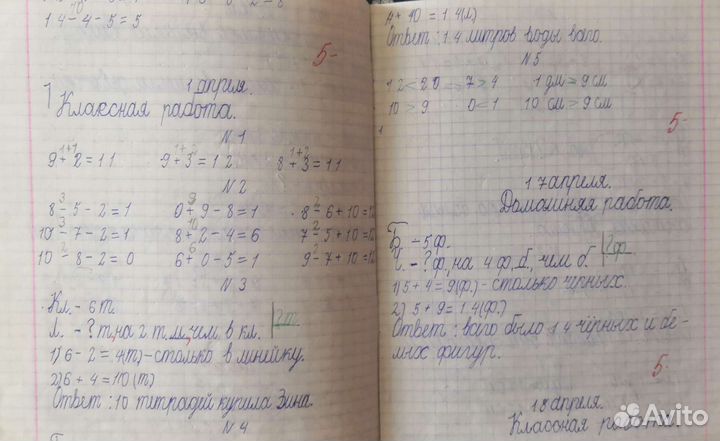 14 - 4 - 5 = 5
5-
1 апреля.
Классная работа.
N 1
1+1 1+2 1+2
9 + 2 = 11 9 + 3 = 12 8 + 3 = 11
N 2
8 - 5 - 2 = 1 0 + 9 - 8 = 1 8 - 6 + 10 = 12
10 - 7 - 2 = 1 8 + 2 - 4 = 6 7 - 5 + 10 = 12
10 - 8 - 2 = 0 6 + 0 - 5 = 1 9 - 7 + 10 = 12
N 3
Кл. - 6 т.
Л. - ? т, на 2 т. м, чем в кл. ? т.
1) 6 - 2 = 4(т) - столько в линейку.
2) 6 + 4 = 10 (т)
Ответ : 10 тетрадей купила Зина.
N 4
4 + 10 = 14(л)
Ответ : 14 литров воды всего.
N 5
12 < 20 7 > 4 1 дм > 9 см
10 > 9 0 < 1 10 см > 9 см
5-
17 апреля.
Домашняя работа.
Б. - 5 ф.
Ч. - ? ф, на 4 ф, б, чем б. ? ф.
1) 5 + 4 = 9(ф.) - столько чёрных.
2) 5 + 9 = 14(ф.)
Ответ : всего было 14 чёрных и бе-
лых фигур.
5-
18 апреля.
Классная работа.
Avito